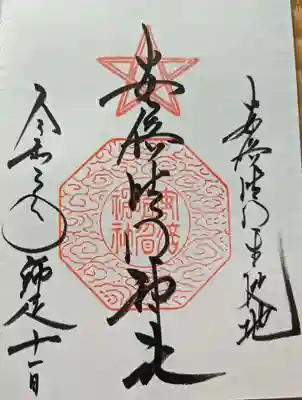 安倍晴明生誕地
安倍晴明神社
令和三年 師走十一日